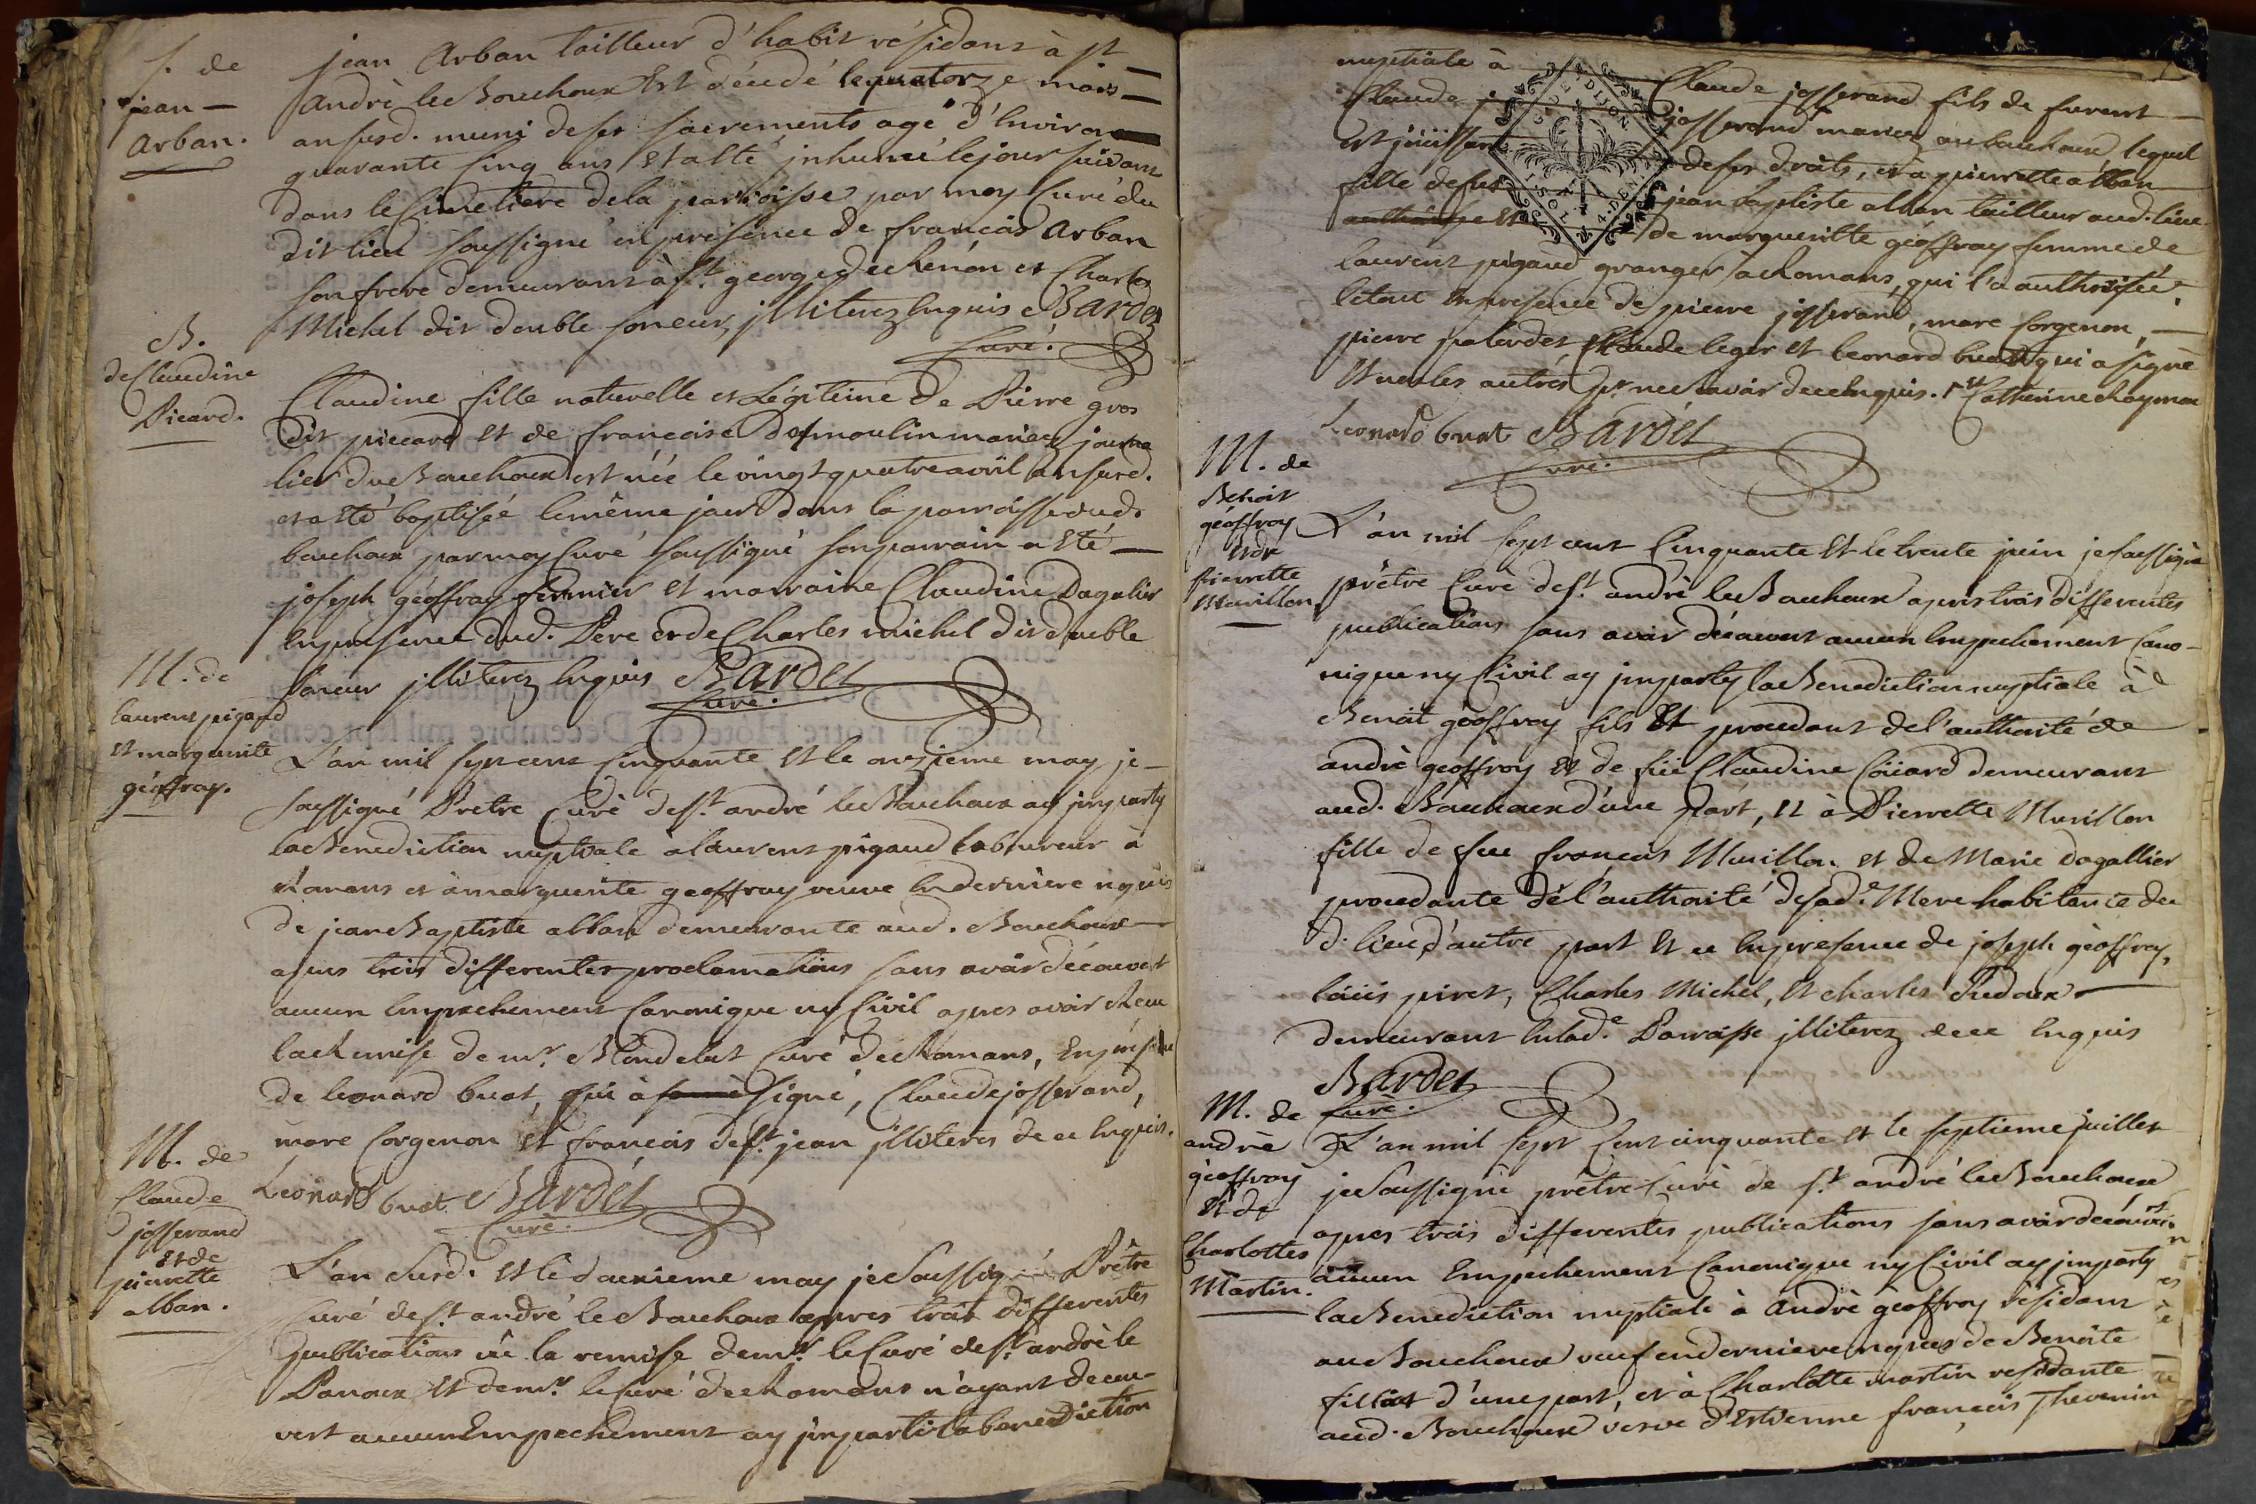 S. de
jean
Arban.
jean Arban tailleur d'habit résidant à st
André le Bouchoux Est décédé le quatorze mars
an susd. muni de ses sacrements agé d'Environ
quarante Cinq ans Et a été inhumé le jour suivant
dans le Cimetiere de la parroisse par moy Curé du
dit lieu soussigné en presence de francois Arban
son frere demeurant à st. george de Renon et Charles
Michel dit double soneur, jlliterez Enquis Bardet
Curé.
B.
de Claudine
Picard.
Claudine fille naturelle et Légitime de Pierre gros
dit piccard et de francoise Desmoulin mariez journa
lier du Bouchoux est née le vingt quatre avril an susd.
et a été baptisée le même jour Dans la parroisse dud.
bouchoux par moy Curé soussigné son parrain a Eté
joseph geoffray fermier et marraine Claudine Dagalier
En presence dud. Pere et de Charles michel dit double
soneur jlliterez Enquis Bardet
Curé.
M. de
laurent pigaud
et marguerite
géoffray.
L'an mil sept cent Cinquante Et le onzieme may je
soussigné Pretre Curé de st. andré le Bouchoux ay jmparty
la Benediction nuptiale a laurent pigaud laboureur à
Romans et à marguerite geoffray veuve En derniere nopces
de jean Baptiste alban demeurante aud. Bouchoux
apres trois differentes proclamations sans avoir décovert
aucun Empechement Canonique ny Civil apres avoir Receu
la Remise de mr. Blondelut Curé de Romans, En presence
de leonard buat, qui à signé, Claude josserand,
marc Corgenon Et francois de st. jean jlliteres de ce Enquis.
Leonard buat Bardet
Curé.
M. de
Claude
josserand
Et de
pierrette
alban.
L'an Susd. et le douxieme may je Soussigné Prêtre
Curé de st. andré le Bouchoux apres trois differentes
publications vû la remise de mr. le Curé de st. andré le
Panoux Et de mr. le Curé de Romans n'ayant decou-
vert aucun Empechement ay jmparti la benediction
nuptiale à Claude josserand fils de
Claude josserand mariez au bouchoux lequel
est joüissant de ses droits, et à pierrette alban
fille de feu jean Baptiste alban tailleur aud. lieu
de margueritte géoffray femme de
laurent pigaud granger à Romans, qui l'a authorisée,
le tout En presence de pierre josserand, marc Corgenon,
pierre Claude leger et leonard buat qui a signé
Et non les autres pr. ne sçavoir de ce Enquis.
Leonard buat Bardet
Curé.
M. de
Benoit
géoffroy
Et de
pierrette
Murillon
L'an mil sept cent Cinquante Et le trente juin je soussigné
prêtre Curé de st. andré le Bouchoux apres trois differentes
publications sans avoir découvert aucun Empechement Cano-
nique ny Civil ay jmparty la Benediction nuptiale à
Benoit géoffroy fils Et procedant de l'authorité de
andré geoffroy Et de füe Claudine Coüard demeurant
aud. Bouchoux d'une part, Et à Pierrette Murillon
fille de feu francois Murillon et de Marie dagallier
procedante de l'authorité de sad.e Mere habitante du
d. lieu, d'autre part Et ce En presence de joseph géoffroy,
loüis piret, Charles Michel, Et charles
demeurant En lad.e Paroisse jlliterez de ce Enquis
Bardet
Curé.
M. de
andré
géoffroy
Et de
Charlottes
Martin.
L'an mil sept Cent cinquante et le septieme juillet
je Soussigné prêtre Curé de st. andré le Bouchoux
apres trois differentes publications sans avoir decouvert
aucun Empechement Canonique ny Civil ay jmparty
la Benediction nuptiale à André géoffroy résidant
au Bouchoux veuf en derniere nopces de Benoite
filliat d'une part, et à Charlotte martin residante
aud. Bouchoux veuve d'Estienne francois Thevenin